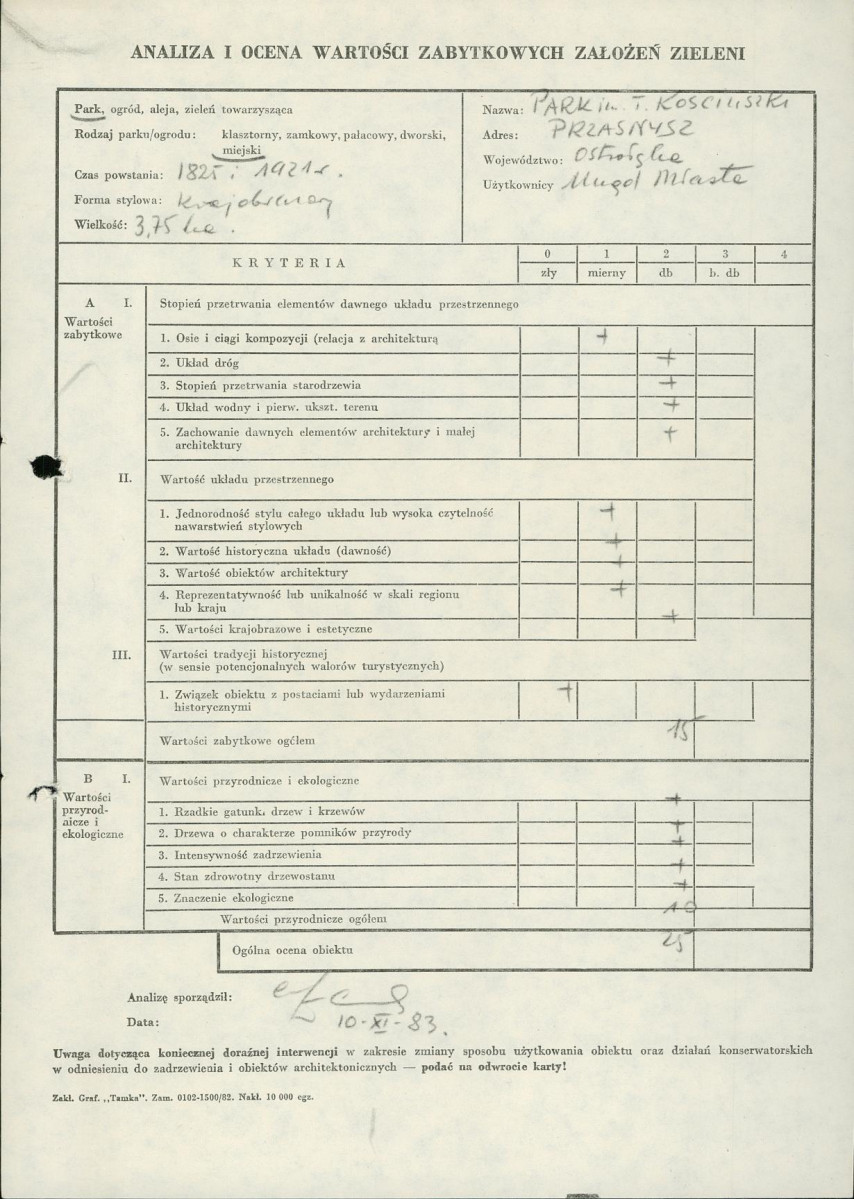 ANALIZA I OCENA WARTOŚCI ZABYTKOWYCH ZAŁOŻEŃ ZIELENI
Park, ogród, aleja, zieleń towarzysząca
Rodzaj parku/ogrodu: klasztorny, zamkowy, pałacowy, dworski,
miejski
Czas powstania: 1825 i 1921 r.
Forma stylowa: krajobrazowy
Wielkość: 3,75 ha.
Nazwa: PARK im. T. KOSCIUSZKI
Adres: PRZASNYSZ
Województwo: Ostrołęka
Użytkownicy Urząd Miasta
KRYTERIA
0 1 2 3 4
zły mierny db b. db
A I. Stopień przetrwania elementów dawnego układu przestrzennego
Wartości
zabytkowe
1. Osie i ciągi kompozycji (relacja z architekturą +
2. Układ dróg +
3. Stopień przetrwania starodrzewia +
4. Układ wodny i pierw. ukszt. terenu +
5. Zachowanie dawnych elementów architektury i małej
architektury +
II. Wartość układu przestrzennego
1. Jednorodność stylu całego układu lub wysoka czytelność
nawarstwień stylowych +
2. Wartość historyczna układu (dawność) +
3. Wartość obiektów architektury +
4. Reprezentatywność lub unikalność w skali regionu
lub kraju +
5. Wartości krajobrazowe i estetyczne +
III. Wartości tradycji historycznej
(w sensie potencjonalnych walorów turystycznych)
1. Związek obiektu z postaciami lub wydarzeniami
historycznymi +
Wartości zabytkowe ogółem 15
B I. Wartości przyrodnicze i ekologiczne
Wartości
przyrod-
nicze i
ekologiczne
1. Rzadkie gatunki drzew i krzewów +
2. Drzewa o charakterze pomników przyrody +
3. Intensywność zadrzewienia +
4. Stan zdrowotny drzewostanu +
5. Znaczenie ekologiczne +
Wartości przyrodnicze ogółem 10
Ogólna ocena obiektu 25
Analizę sporządził:
Data: 10-XI-83.
Uwaga dotycząca koniecznej doraźnej interwencji w zakresie zmiany sposobu użytkowania obiektu oraz działań konserwatorskich
w odniesieniu do zadrzewienia i obiektów architektonicznych — podać na odwrocie karty!
Zakł. Graf. „Tamka". Zam. 0102-1500/82. Nakł. 10 000 egz.